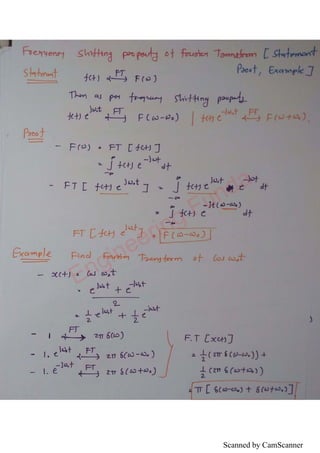 Frequency Shifting property of Fourier Transform [Statement
Proof, Example]
Statement
f(t) ←FT→ F(ω)
Then as per frequency shifting property
f(t) e^{jω₀t} ←FT→ F(ω-ω₀) | f(t) e^{-jω₀t} ←FT→ F(ω+ω₀).
Proof
- F(ω) = FT [f(t)]
= ∫_{-∞}^{∞} f(t) e^{-jωt} dt
- FT [f(t) e^{jω₀t}] = ∫_{-∞}^{∞} f(t) e^{jω₀t} e^{-jωt} dt
= ∫_{-∞}^{∞} f(t) e^{-jt(ω-ω₀)} dt
FT [f(t) e^{jω₀t}] = F(ω-ω₀)
Example Find Fourier Transform of cos ω₀t
- x(t) = cos ω₀t
= e^{jω₀t} + e^{-jω₀t} / 2
= 1/2 e^{jω₀t} + 1/2 e^{-jω₀t}
- 1 ←FT→ 2π δ(ω)
- 1. e^{jω₀t} ←FT→ 2π δ(ω-ω₀)
- 1. e^{-jω₀t} ←FT→ 2π δ(ω+ω₀)
F.T [x(t)]
= 1/2 (2π δ(ω-ω₀)) +
1/2 (2π δ(ω+ω₀))
= π [δ(ω-ω₀) + δ(ω+ω₀)]
Engineering Funda
Scanned by CamScanner